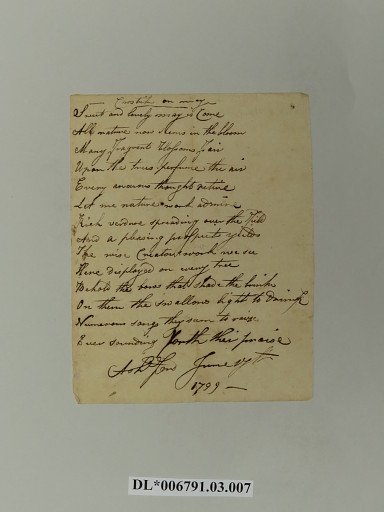 Acrostick on may
Sweet and lovely may is Come
All nature now Seems in the bloom
Many Fragrent Blossoms Fair
Upon the trees perfume the air
Every anxious thought retire
Let me natures work admire
Rich verdure spreading over the Field
And a pleasing prospects yields
The wise Creators work we see
Here displayed on every tree
Behold the that shade the brink
On them the swallows light to drink
Numerous songs they seem to raise
Ever sounding Forth their praise
June
1799 —
DL*006791.03.007